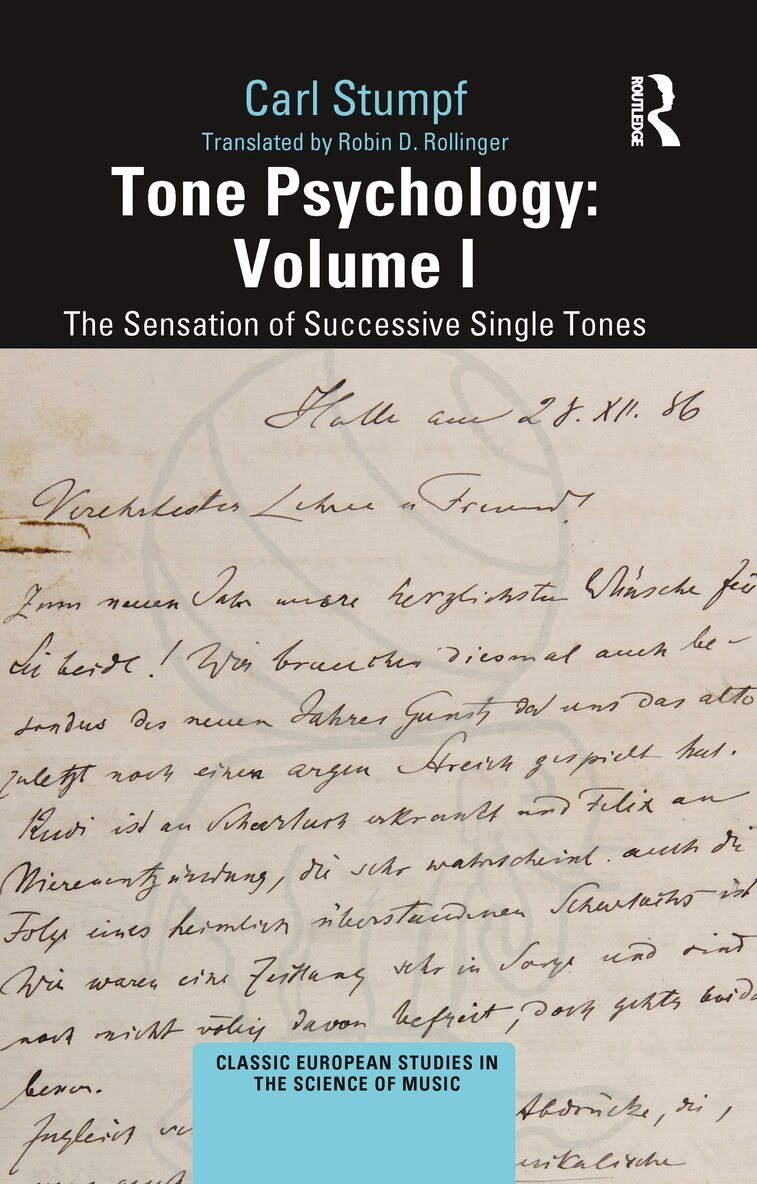 Carl Stumpf
Translated by Robin D. Rollinger
ROUTLEDGE
Tone Psychology:
Volume I
The Sensation of Successive Single Tones
Halle am 28. XII. 86
Verehrtester Lehrer u Freund!
Zum neuen Jahr unsre herzlichsten Wünsche für
Sie beide! Wir brauchen diesmal auch be-
sonders des neuen Jahres Gunst, da uns das alte
zuletzt noch einen argen Streich gespielt hat.
Rudi ist an Scharlach erkrankt und Felix an
Nierenentzündung, die sehr wahrscheinl. auch die
Folge eines heimlich überstandenen Scharlachs ist
Wir waren eine Zeitlang sehr in Sorge und sind
noch nicht völlig davon befreit, doch gehts beiden
besser.
Zugleich
Abdrücke, die,
musikalische
CLASSIC EUROPEAN STUDIES IN
THE SCIENCE OF MUSIC